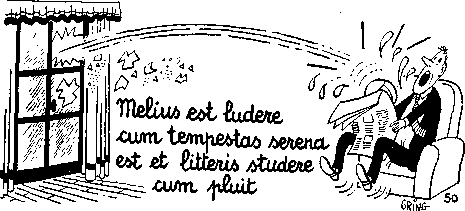 Melius est ludere
cum tempestas serena
est et litteris studere
cum pluit
GRING 50